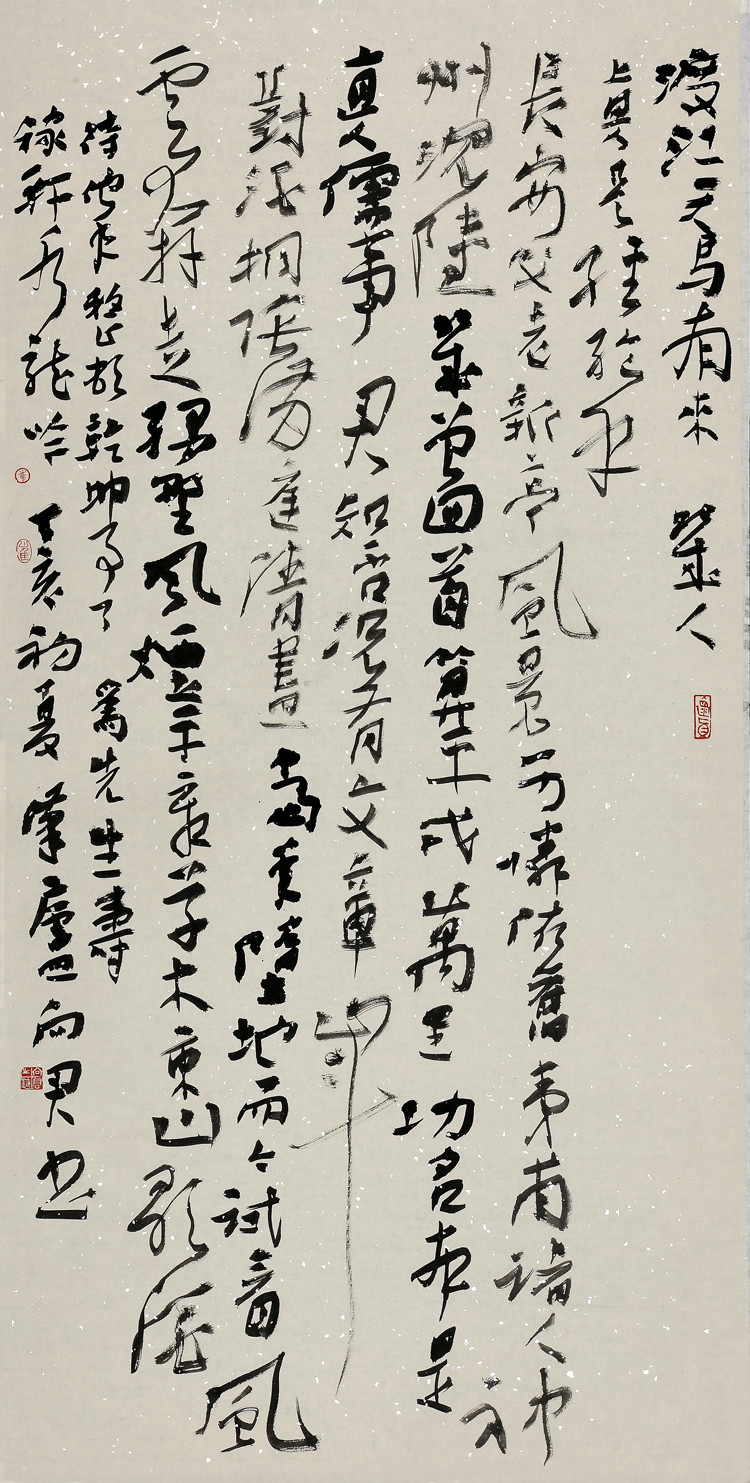 渡江天馬南來 幾人
真是經綸手
長安父老新亭風景可憐依舊夷甫諸人神
州沉陸幾曾回首算平戎萬里 功名本是
真儒事 君知否況有文章山斗
對桐陰滿庭清晝 當年墮地而今試看風
雲奔走綠野風煙平泉草木東山歌酒
待他年整頓乾坤事了 為先生壽
稼軒水龍吟 丁亥初夏 向君書